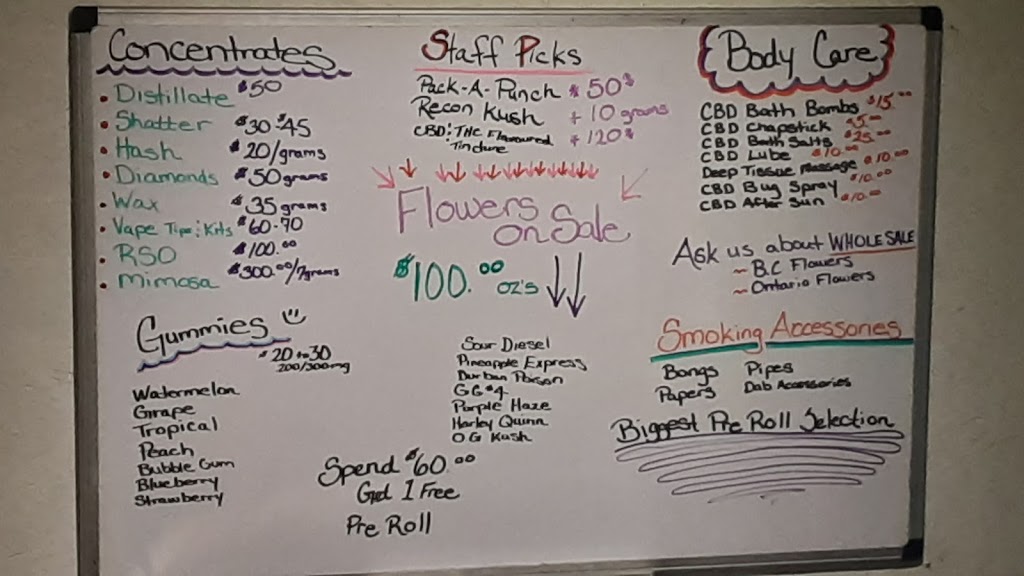 Concentrates
• Distillate $50
• Shatter $30-$45
• Hash $20/grams
• Diamonds $50 grams
• Wax $35 grams
• Vape Tips: Kits $60-70
• RSO $100.00
• Mimosa $300.00/7grams
Gummies
$20 to 30
200/300mg
Watermelon
Grape
Tropical
Peach
Bubble Gum
Blueberry
Strawberry
Staff Picks
Pack-A-Punch $50
Recon Kush + 10 grams
CBD: THC Flavoured + 120
Tincture
Flowers
on Sale
$100.00 oz's
Sour Diesel
Pineapple Express
Durban Poison
GG #4
Purple Haze
Harley Quinn
OG Kush
Spend $60.00
Get 1 Free
Pre Roll
Body Care
CBD Bath Bombs $15.00
CBD Chapstick $5.00
CBD Bath Salts $25.00
CBD Lube $10.00
Deep Tissue Massage $10.00
CBD Bug Spray $10.00
CBD After Sun $10.00
Ask us about WHOLESALE
~ B.C Flowers
~ Ontario Flowers
Smoking Accessories
Bongs Pipes
Papers Dab Accessories
Biggest Pre Roll Selection